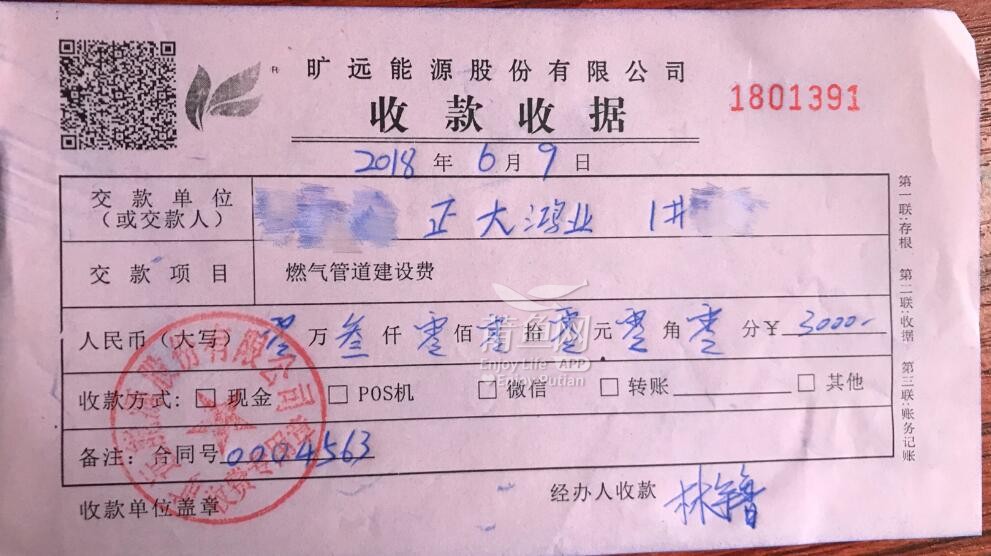 旷远能源股份有限公司
收款收据
1801391
2018年6月9日
交款单位
(或交款人)
正大鸿业 1#
交款项目
燃气管道建设费
人民币(大写) 零万叁仟零佰零拾零元零角零分¥ 3000-
收款方式: 现金 POS机 微信 转账 其他
备注: 合同号0004563
收款单位盖章
经办人收款
第一联:存根 第二联:收据 第三联:账务记账
股份有限公司
收费专用章
莆鱼网
Enjoy Life APP
Enjoy Putian